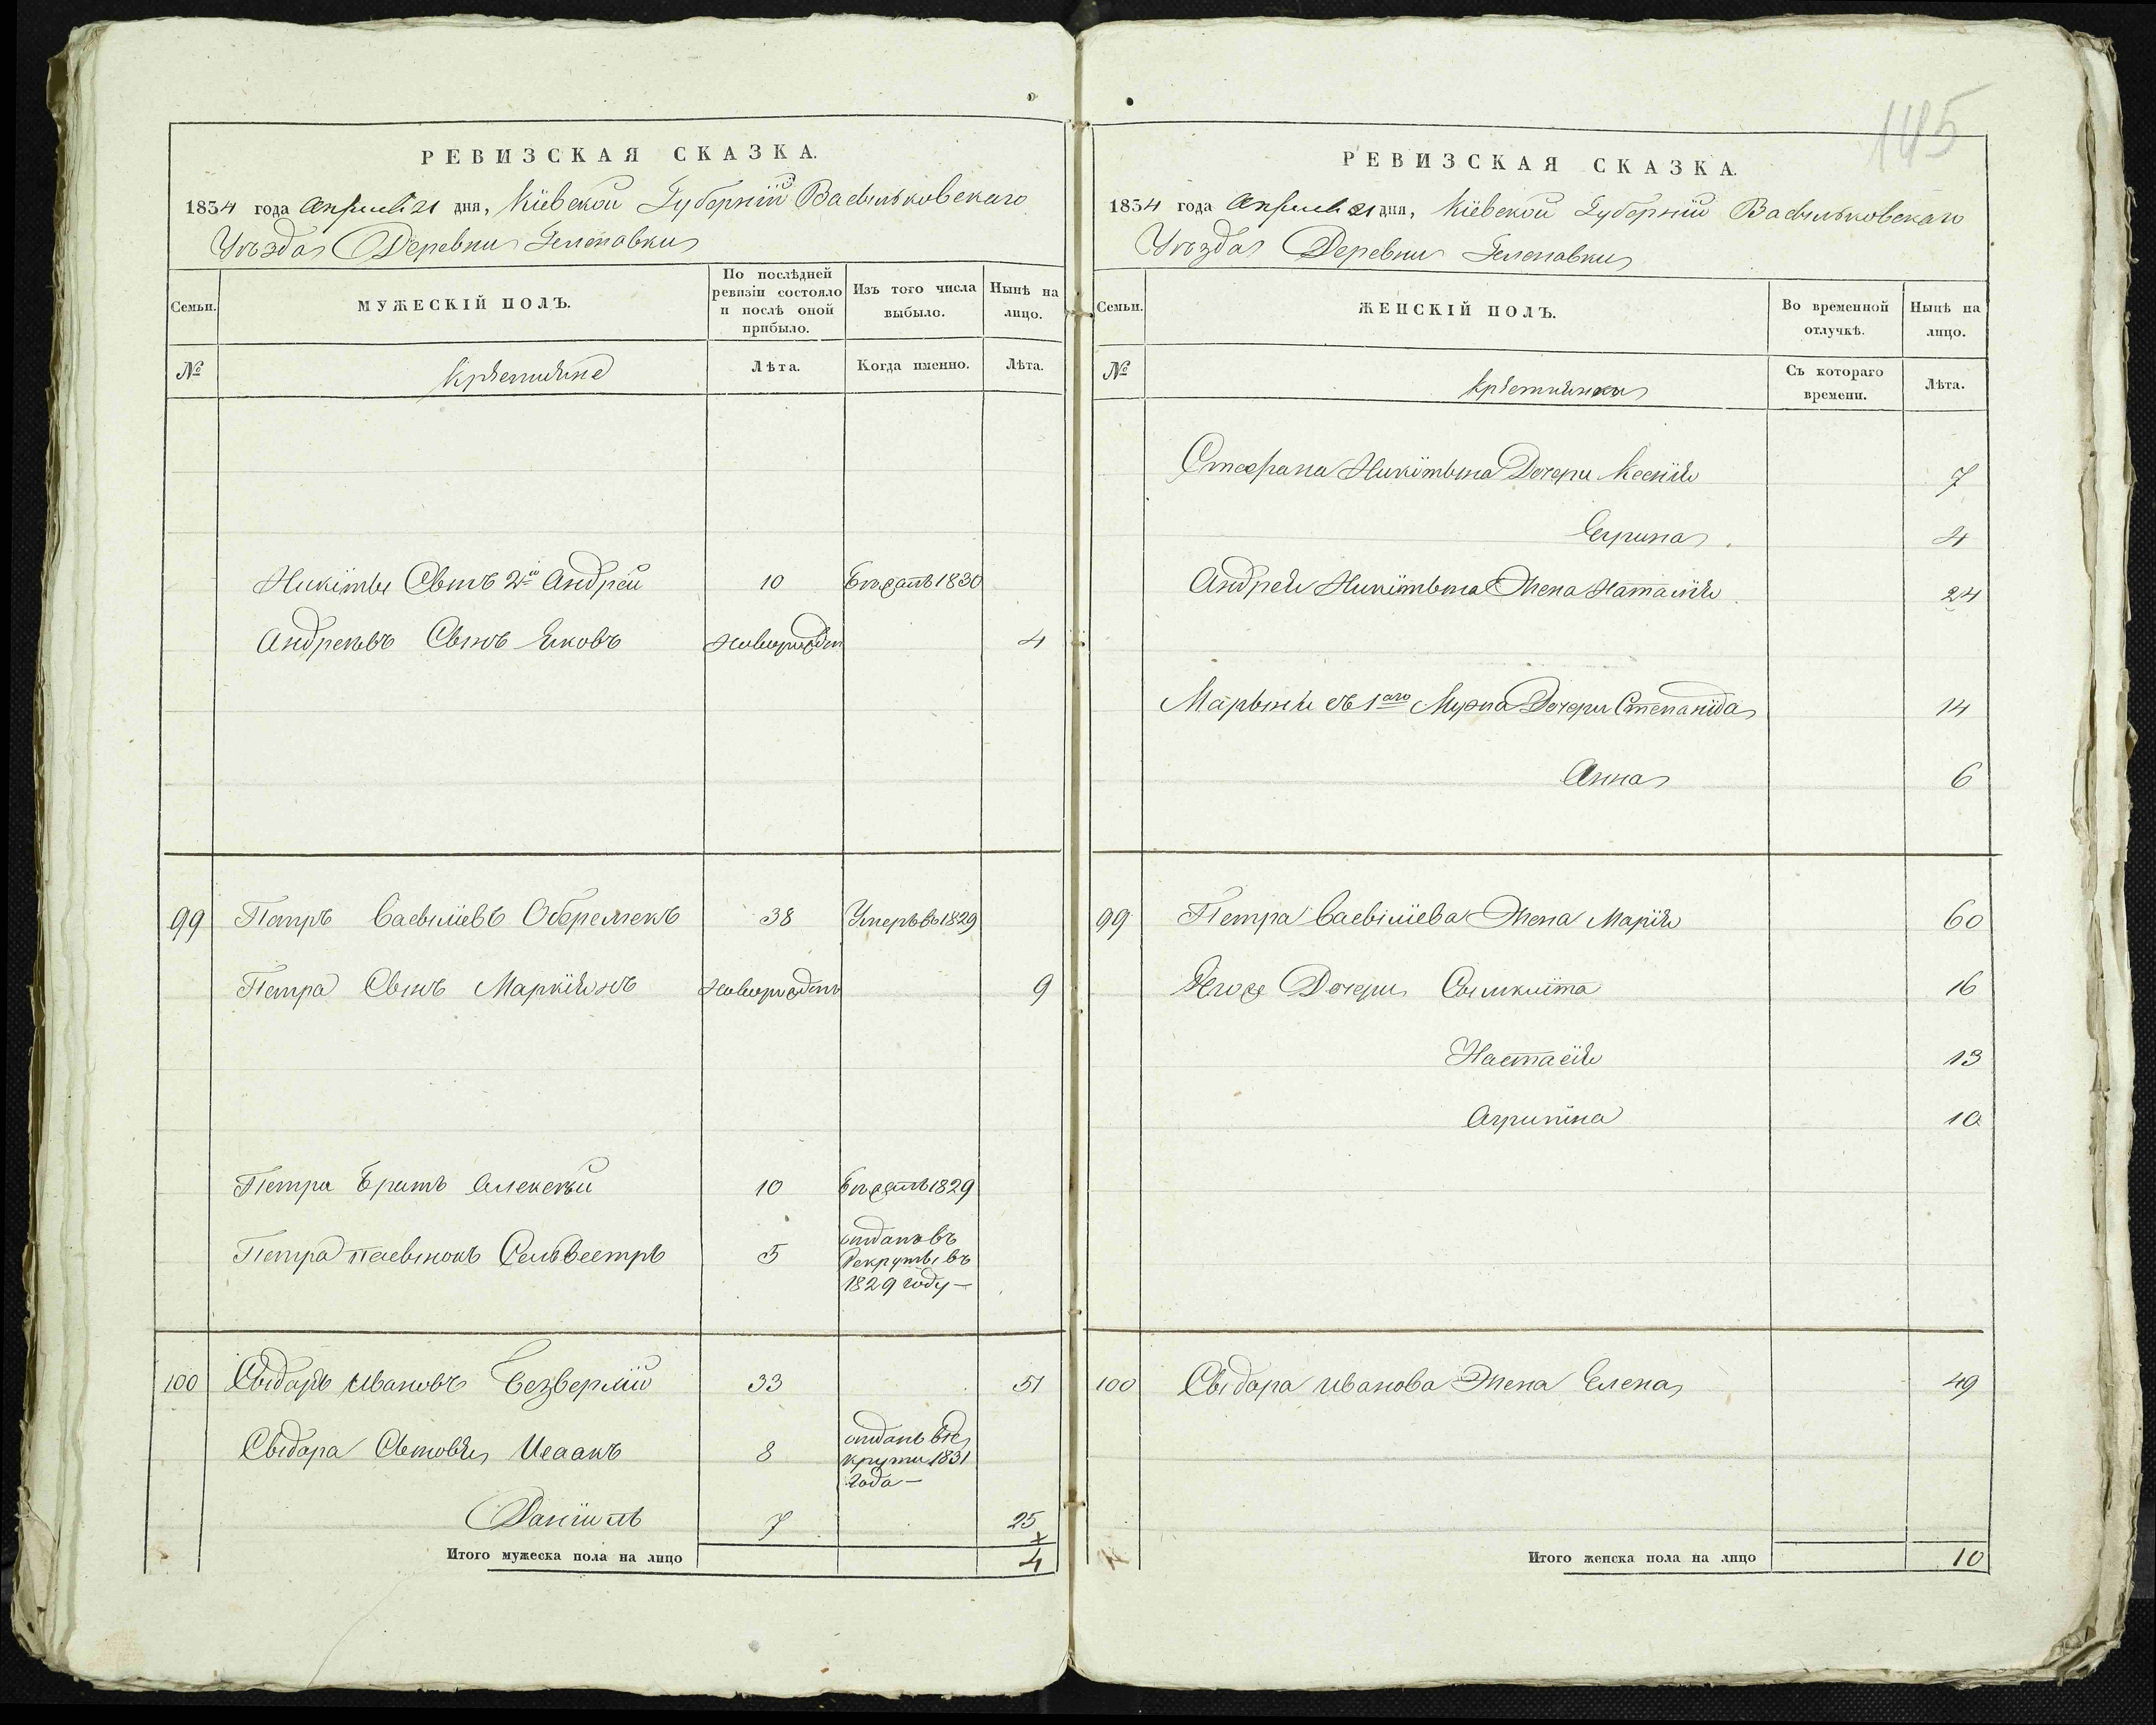 145
РЕВИЗСКАЯ СКАЗКА.
1834 года Апреля 21 дня, Кіевской Губерніи Васильковскаго
Уѣзда Деревни Гелеповки
Семьи.
МУЖЕСКІЙ ПОЛЪ.
По послѣдней ревизіи состояло и послѣ оной прибыло.
Изъ того числа выбыло.
Нынѣ на лицо.
№
Крѣстьяне
Лѣта.
Когда именно.
Лѣта.
Никиты Сынъ 2й Андрей 10 Бежалъ 1830
Андреевъ Сынъ Яковъ новорожден 4
99 Петръ Савыліевъ Оберемокъ 38 Умеръ въ 1829
Петра Сынъ Маркіянъ новорожден 9
Петра Братъ Алексѣй 10 Бежалъ 1829
Петра пасынокъ Сельвестръ 5 отданъ въ
рекруты въ
1829 году —
100 Сыдоръ Ивановъ Безверхій 33 51
Сыдора Сыновья Исаакъ 8 отданъ в ре
круты 1831
года —
Даніилъ 7 25
Итого мужеска пола на лицо 4
РЕВИЗСКАЯ СКАЗКА.
1834 года Апреля 21 дня, Кіевской Губерніи Васильковскаго
Уѣзда Деревни Гелеповки
Семьи.
ЖЕНСКІЙ ПОЛЪ.
Во временной отлучкѣ.
Нынѣ на лицо.
№
Крѣстьянки
Съ котораго времени.
Лѣта.
Стефана Никитына Дочери Ксенія 7
4
Андрея Никитына Жена Наталія 24
Марыни съ 1аго Мужа Дочери Степанида 14
Анна 6
99 Петра Савыліева Жена Марія 60
Егоже Дочери 16
Настасія 13
Агрипина 10
100 Сыдора Иванова Жена Елена 49
Итого женска пола на лицо 10